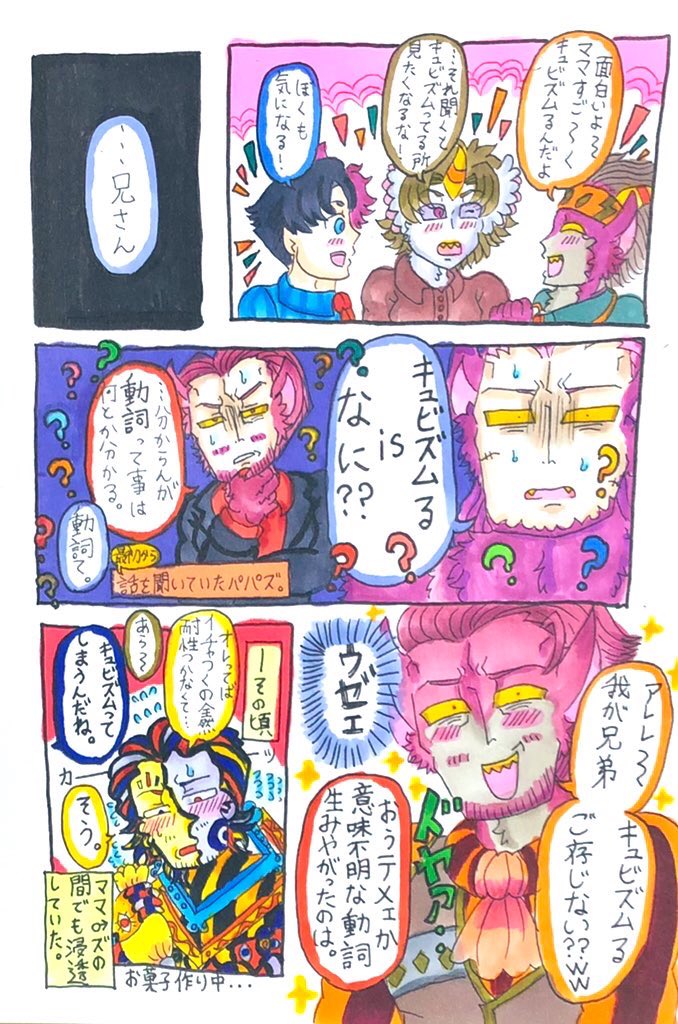 面白いよ〜〜
ママすご〜〜く
キュビズムるんだよ
…それ聞くと
キュビズムってる所
見たくなるな!
ぼくも
気になる!
…兄さん
キュビズムる
is
なに??
…分からんが
動詞って事は
何とか分かる。
動詞て。
最初から
話を聞いていたパパズ。
アレレ〜〜
我が兄弟
キュビズムる
ご存じない??ww
ドヤァ…
ウゼェ
おうテメェか
意味不明な動詞
生みやがったのは。
ーその頃
オレってば
イチャつくの全然
耐性つかなくて…
あら〜
キュビズムって
しまうんだね。
カーッ
そう。
ママズの
間でも浸透
していた。
お菓子作り中…